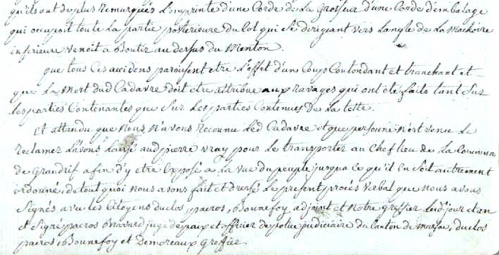 qu'ils ont de plus Remarqués L'empreinte d'une Corde de La Grosseur d'une Corde d'embalage
qui occupoit toute La partie posterieure du Col qui se dirigeant vers Langle de La machoire
inferieure venoit aboutir au dessus du Menton.
que tous Ces accidens paroissent etre L'effet d'un Coup Contondant et tranchant et
que La Mort dud Cadavre doit etre attribuée aux ravages qui ont ete faits tant Sur
Les parties Contenantes que Sur Les parties Contenues de La tette.
Et attendu que Nous N'avons Reconnu Led Cadavre et que personne N'est venu Le
Reclamer Lavons Laissé aud pierre vray pour Le transporter au Chef lieu de La Commune
de afin d'y etre Exposé a La vue du peuple jusqua Ce qu'il en Soit autrement
ordonné, de tout quoi nous avons fait et dressé Le present procès verbal que nous avons
Signés avec Les Citoyens duclos pairos, Bonnefoy adjoint et Notre Greffier Lesd jour et an
et Signé pairos juge de paix et officier de police judiciaire du Canton de duclos
pairos, Bonnefoy et Demoreaux Greffier.